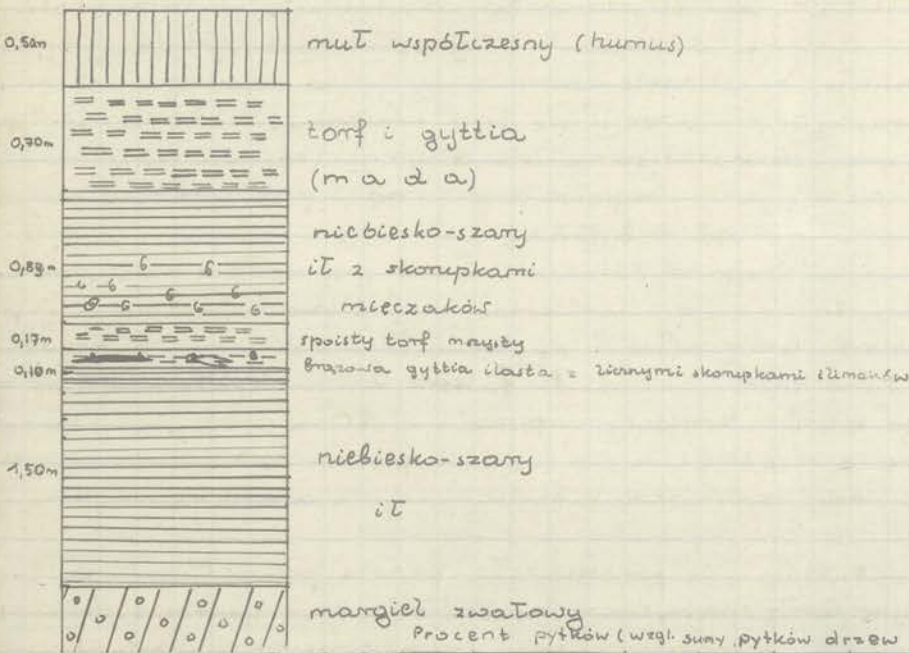 0,50m muł współczesny (humus)
0,70m torf i gyttia
(mada)
niebiesko-szary
0,89m ił z skorupkami
mięczaków
0,17m spoisty torf mszysty
0,10m brązowa gyttia ilasta z licznymi skorupkami ślimaków
niebiesko-szary
1,50m
ił
margiel zwałowy
Procent pyłków (wzgl. sumy pyłków drzew